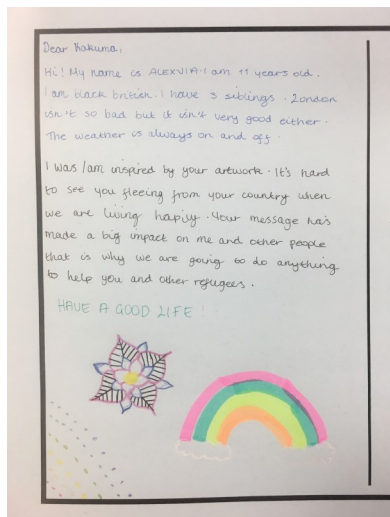 Dear Kakuma,
Hi! My name is ALEXVIA. I am 11 years old.
I am black british. I have 3 siblings. London
isn't so bad but it isn't very good either.
The weather is always on and off.
I was/am inspired by your artwork. It's hard
to see you fleeing from your country when
we are living happy. Your message has
made a big impact on me and other people
that is why we are going to do anything
to help you and other refugees.
HAVE A GOOD LIFE!